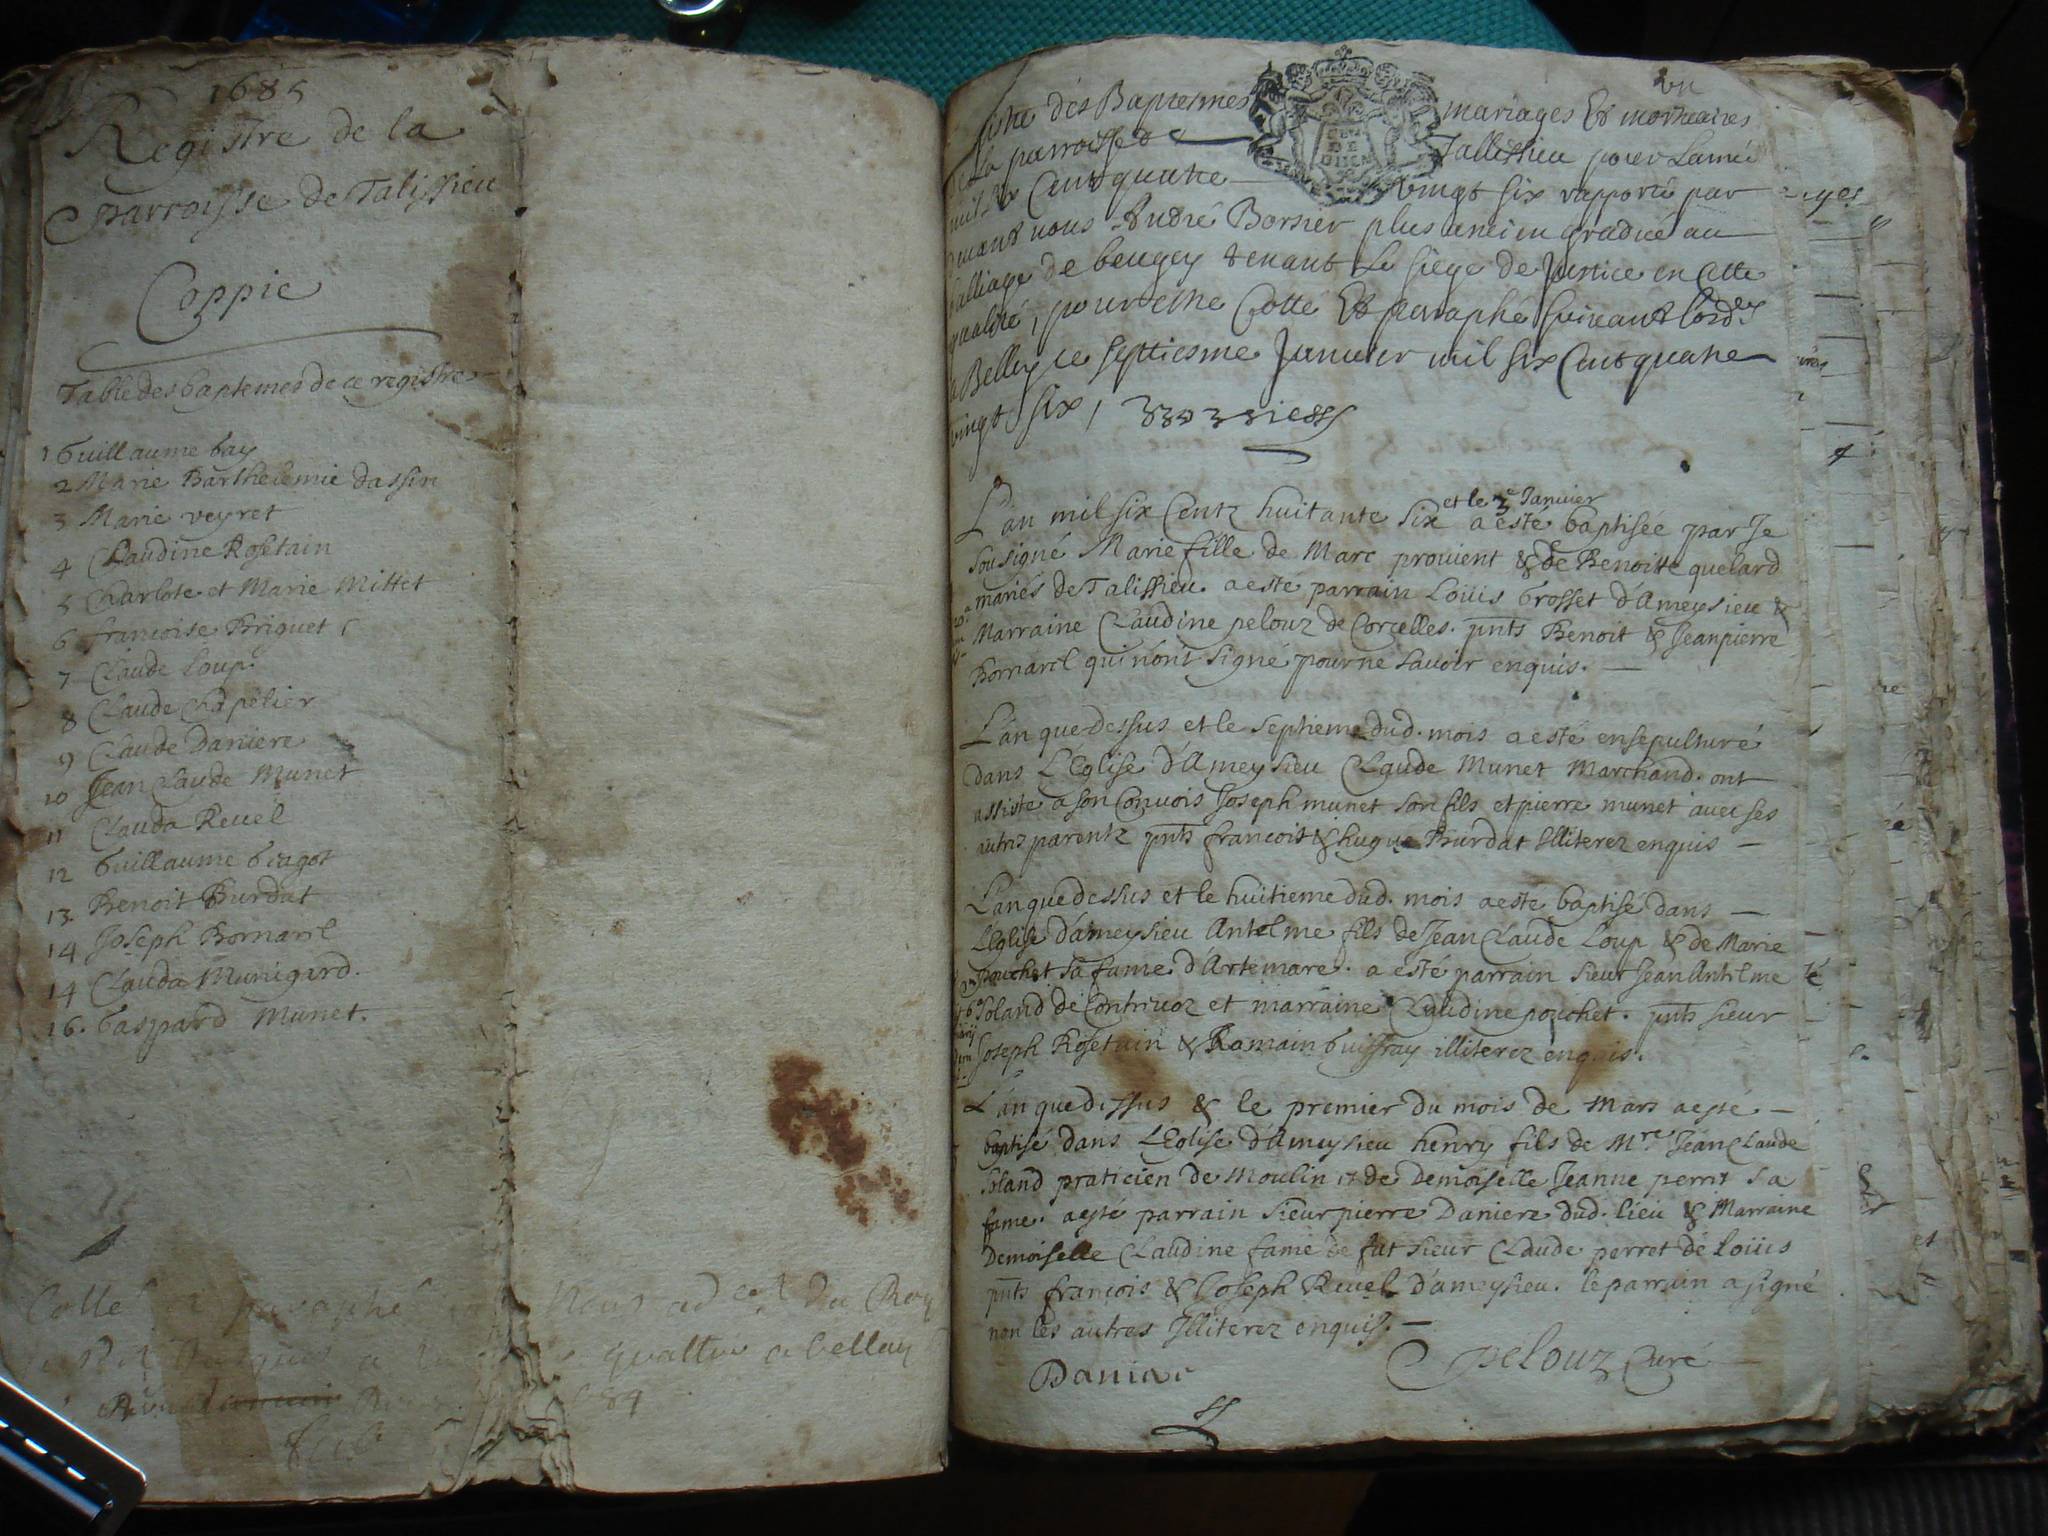 1685
Registre de la
parroisse de Talissieu
Coppie
Table des baptemes de ce registre
1 Guillaume Gay
2 Marie Barthelemie dassin
3 Marie veyret
4 Claudine Rosetain
5 Charlote et Marie Mittet
6 francoise Briguet
7 Claude Loup
8 Claude Chapelier
9 Claude Daniere
10 Jean Claude Munet
11 Clauda Revel
12 Guillaume Gragot
13 Benoit Burdat
14 Joseph Bornarel
14 Clauda Munigard.
16. Gaspard Munet.
Collé et paraphé Nous du Roy
quattre a bellay
84
vn
des Baptesmes mariages Et mortuaires
de La parroisse de Tallissieu pour Lanneé
mil six Cent quatre vingt six rapporté par
devant nous André Bornier plus antien gradué au
balliage de beugey tenant Le siege de Justice en Cette
qualité, pour estre Cotté Et paraphé suivant lord.
a Belley ce septiesme Janvier mil six Cent quatre
vingt six /
GEN
DE
DIION
L'an mil six Centz huitante six et le 3e Janvier a esté baptisée par Je
sousigné Marie fille de Marc provient & de Benoitte quelard
mariés de Talissieu. a esté parrain Loüis Grosset d'Ameysieu &
Marraine Claudine pelouz de Corcelles. pnts Benoit & Jeanpierre
Bornarel qui n'ont signé pour ne savoir enquis. —
L'an que dessus et le septieme dud. mois a esté ensepulturé
dans L'Eglise d'Ameysieu Claude Munet Marchand. ont
assisté a son Convois Joseph munet son fils et pierre munet avec ses
autres parentz pnts francois & hugue Burdat Illiterez enquis —
L'an que dessus et le huitieme dud. mois a esté baptisé dans —
L'Eglise d'ameysieu Antelme fils de Jean Claude Loup & de Marie
pouchet sa fame d'Artemare. a esté parrain sieur Jean Antelme
Soland de Contrevoz et marraine Claudine pouchet. pnts sieur
Joseph Rosetain & Romain Guiffray illiterez enquis.
L'an que dessus & le premier du mois de Mars a esté —
baptisé dans L'Eglise d'Ameysieu henry fils de Mre Jean Claude
Soland praticien de Moulin et de Demoiselle Jeanne perret sa
fame. a esté parrain sieur pierre Daniere dud. lieu & Marraine
Demoiselle Claudine fame de fut sieur Claude perret de Loüis
pnts françois & Joseph Revel d'ameysieu. le parrain a signé
non les autres Illiterez enquis. —
Daniere
pelouz Curé